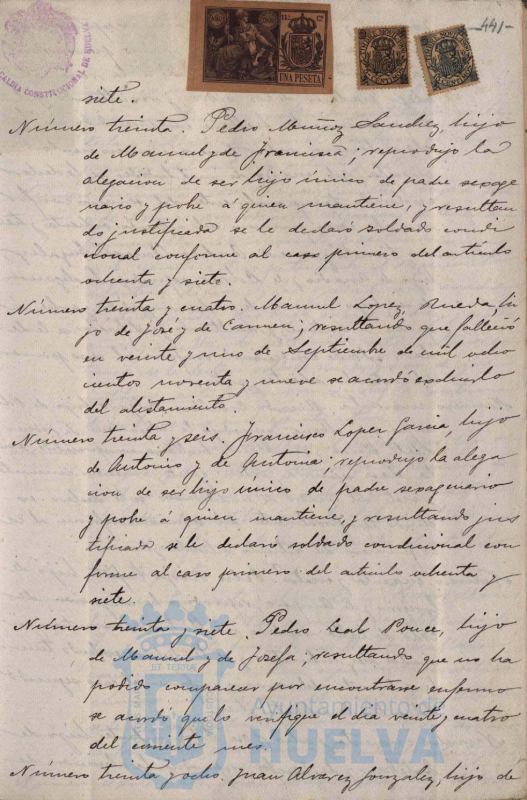 -441-
ALCALDIA CONSTITUCIONAL DE HUELVA
UNA PESETA
siete.
Número treinta. Pedro Muñoz Sanchez, hijo
de Manuel y de Francisca; reprodujo la
alegacion de ser hijo único de padre sexage
nario y pobre á quien mantiene, y resultan
do justificada se le declaró soldado condi
cional conforme al caso primero del artículo
ochenta y siete.
Número treinta y cuatro. Manuel Lopez Rueda, hi
jo de José y de Carmen; resultando que falleció
en veinte y uno de Septiembre de mil ocho
cientos noventa y nueve se acordó excluirlo
del alistamiento.
Número treinta y seis. Francisco Lopez Garcia, hijo
de Antonio y de Antonia; reprodujo la alega
cion de ser hijo único de padre sexagenario
y pobre á quien mantiene, y resultando jus
tificada se le declaró soldado condicional con
forme al caso primero del artículo ochenta y
siete.
Número treinta y siete. Pedro Leal Ponce, hijo
de Manuel y de Josefa; resultando que no ha
podido comparecer por encontrarse enfermo
se acordó que lo verifique el dia veinte y cuatro
del corriente mes.
Número treinta y ocho. Juan Alvarez Gonzalez, hijo de
Ayuntamiento de
HUELVA